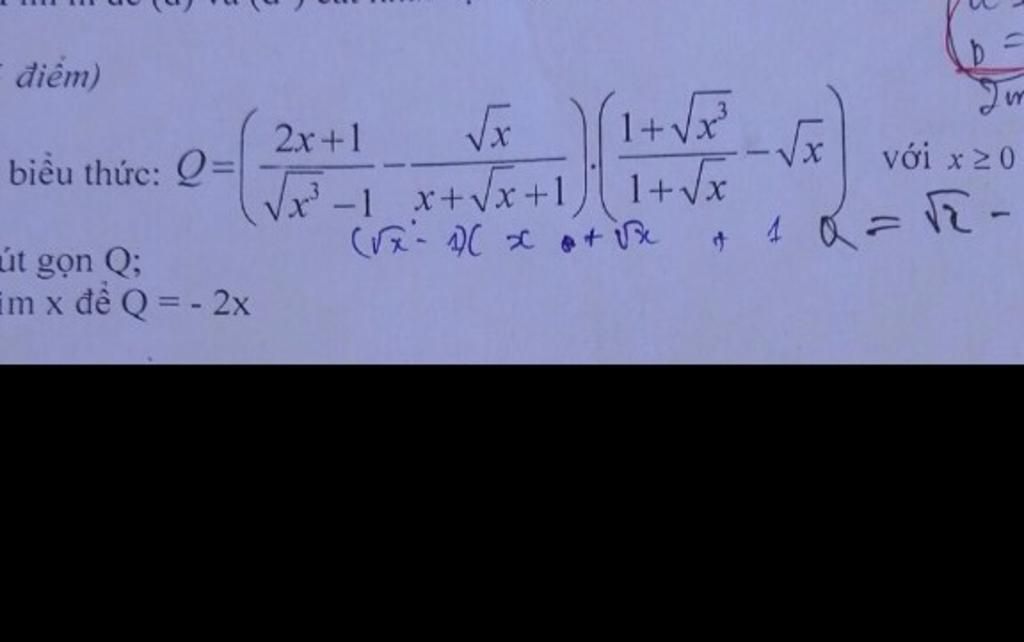 điểm)
biểu thức: Q=( (2x+1)/(√x³ −1) − √x/(x+√x+1) ).( (1+√x³)/(1+√x) −√x ) với x ≥ 0
(√x - 1)( x + √x + 1 Q = √x -
út gọn Q;
im x để Q = - 2x